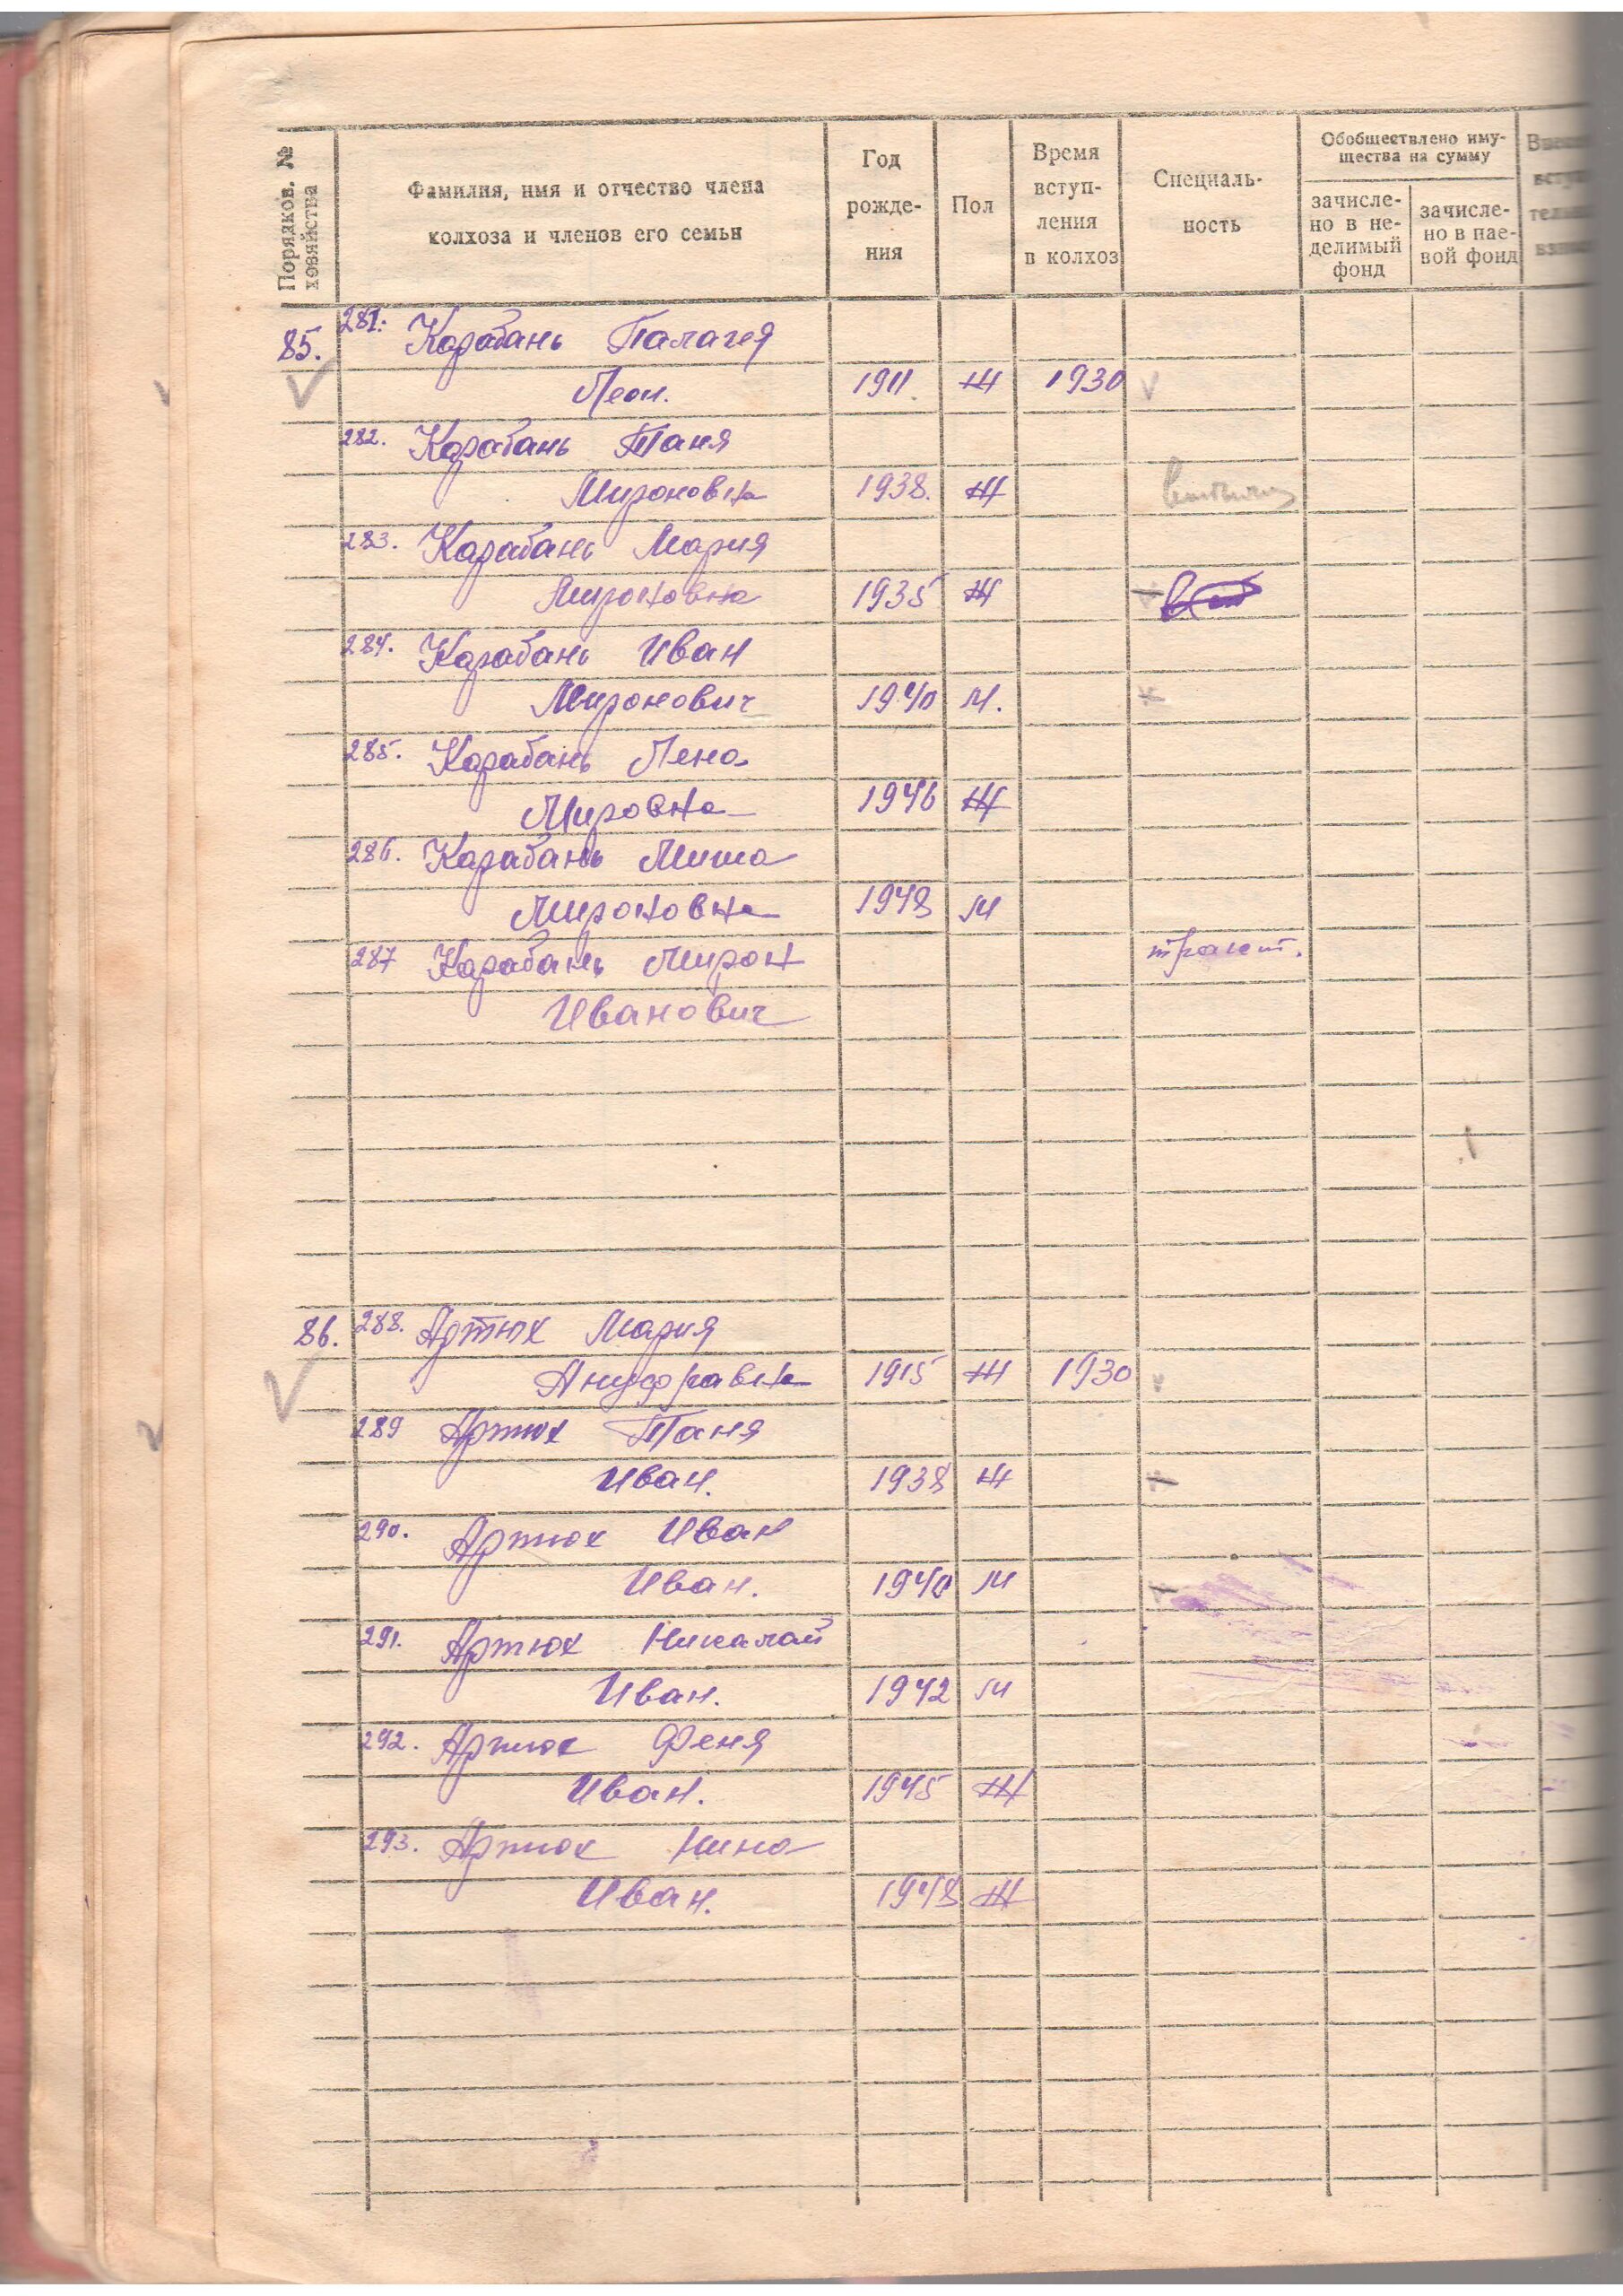 Порядков. № хозяйства
Фамилия, имя и отчество члена
колхоза и членов его семьи
Год
рожде-
ния
Пол
Время
вступ-
ления
в колхоз
Специаль-
ность
Обобществлено иму-
щества на сумму
зачисле-
но в не-
делимый
фонд
зачисле-
но в пае-
вой фонд
85. 281. Карабань Палагея
Леон. 1911 Ж 1930
282. Карабань Таня
Мироновна 1938. Ж
283. Карабань Мария
Мироновна 1935 Ж
284. Карабань Иван
Миронович 1940 М.
285. Карабань Лена
Мировна 1946 Ж
286. Карабань Миша
Мироновна 1948 М
287 Карабань Мирон
Иванович
86. 288. Артюх Мария
Ануфравна 1915 Ж 1930
289 Артюх Таня
Иван. 1938 Ж
290. Артюх Иван
Иван. 1940 М
291. Артюх Никалай
Иван. 1942 М
292. Артюх Феня
Иван. 1945 Ж
293. Артюх Нина
Иван. 1948 Ж